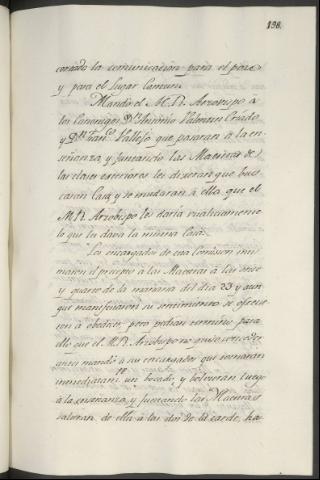 138.
cortado la comunicacion para el pozo
y para el Lugar Comun.
Mandó el M. R. Arzobispo á
los Canonigos Dn. Antonio Palomares Criado
y Dn. Franco. Vallejo que pasaran á la en-
señanza, y juntando las Maestras de
las clases exteriores les dixeran que bus-
caran Casa, y se mudaran á ella, que el
M. R. Arzobispo les daria vitaliciamente
lo que les dava la misma Casa.
Los encargados de esta Comision inti-
maron el precepto á las Maestras á las once
y quarto de la mañana del dia 23 y aun
que manifestaron su sentimiento se ofrecie-
ron á obedecer, pero pedian termino para
ello que el M. R. Arzobispo no quiso conceder
antes mandó á sus encargados que tomaran
inmediatamte. un bocado, y bolvieran luego
á la enseñanza, y juntando las Maestras
salieran de ella á las dos de la tarde, ha